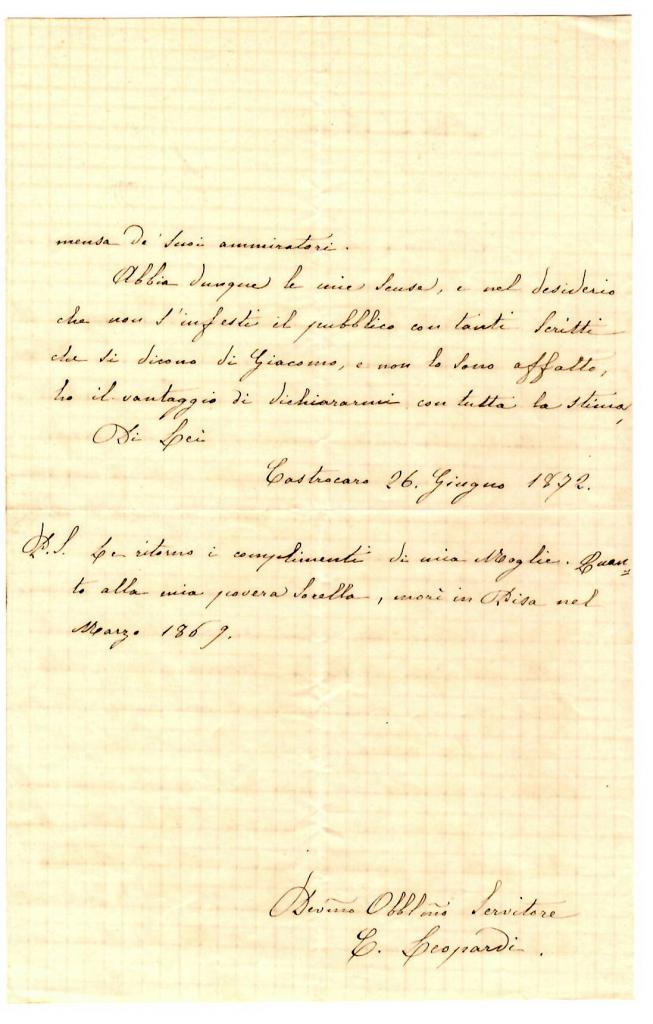 mensa de' suoi ammiratori.
Abbia dunque le mie scuse, e nel desiderio
che non s'infesti il pubblico con tanti scritti
che si dicono di Giacomo, e non lo sono affatto,
ho il vantaggio di dichiararmi con tutta la stima,
Di Lei
Castrocaro 26. Giugno 1872.
P.S. Le ritorno i complimenti di mia Moglie. Quan=
to alla mia povera Sorella, morì in Pisa nel
Marzo 1869.
Devmo Obblmo Servitore
C. Leopardi.